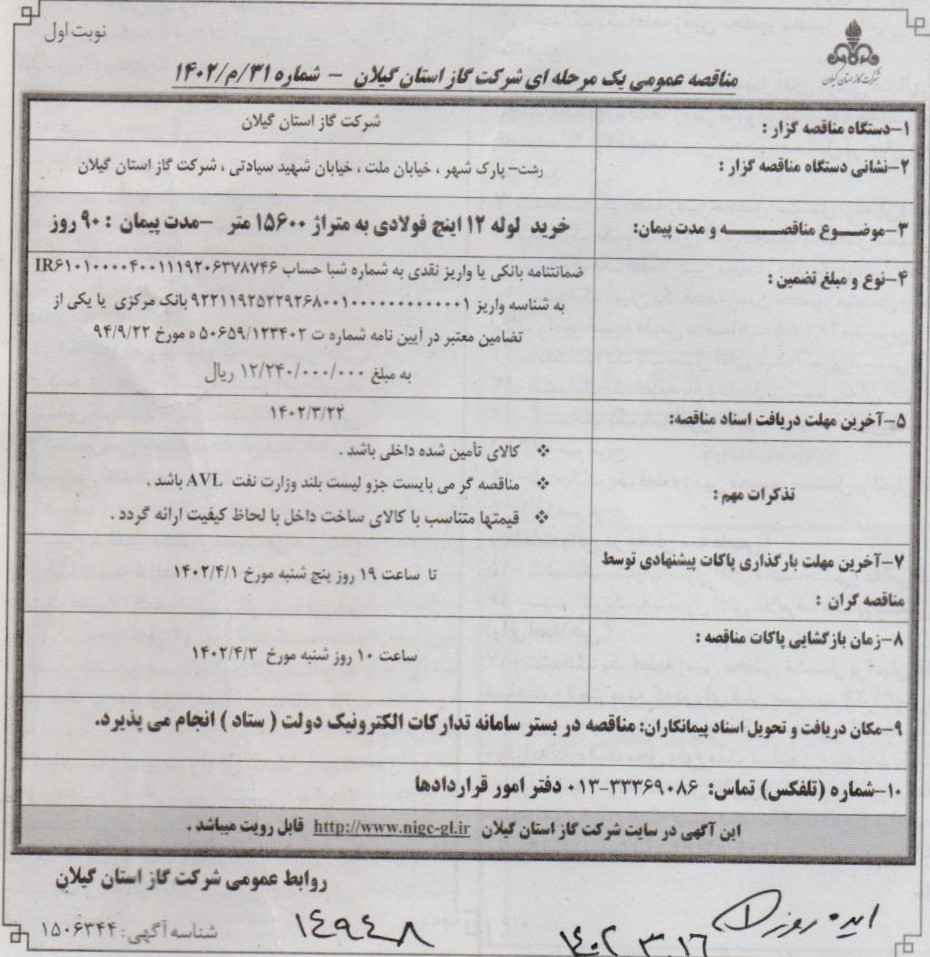 نوبت اول
شرکت گاز استان گیلان
مناقصه عمومی یک مرحله ای شرکت گاز استان گیلان – شماره ۳۱/م/۱۴۰۲
۱–دستگاه مناقصه گزار : شرکت گاز استان گیلان
۲–نشانی دستگاه مناقصه گزار : رشت– پارک شهر ، خیابان ملت ، خیابان شهید سیادتی ، شرکت گاز استان گیلان
۳–موضوع مناقصه و مدت پیمان: خرید لوله ۱۲ اینچ فولادی به متراژ ۱۵۶۰۰ متر –مدت پیمان : ۹۰ روز
۴–نوع و مبلغ تضمین : ضمانتنامه بانکی یا واریز نقدی به شماره شبا حساب IR۶۱۰۱۰۰۰۰۴۰۰۱۱۱۹۲۰۶۳۷۸۷۴۶
به شناسه واریز ۹۲۲۱۱۹۲۵۲۲۹۲۶۸۰۰۱۰۰۰۰۰۰۰۰۰۰۰۰۰۱ بانک مرکزی یا یکی از
تضامین معتبر در آیین نامه شماره ت ۵۰۶۵۹/۱۲۳۴۰۲ ه مورخ ۹۴/۹/۲۲
به مبلغ ۱۲/۲۴۰/۰۰۰/۰۰۰ ریال
۵–آخرین مهلت دریافت اسناد مناقصه: ۱۴۰۲/۳/۲۲
تذکرات مهم :
❖ کالای تأمین شده داخلی باشد .
❖ مناقصه گر می بایست جزو لیست بلند وزارت نفت AVL باشد .
❖ قیمتها متناسب با کالای ساخت داخل با لحاظ کیفیت ارائه گردد .
۷–آخرین مهلت بارگذاری پاکات پیشنهادی توسط
مناقصه گران : تا ساعت ۱۹ روز پنج شنبه مورخ ۱۴۰۲/۴/۱
۸–زمان بازگشایی پاکات مناقصه : ساعت ۱۰ روز شنبه مورخ ۱۴۰۲/۴/۳
۹–مکان دریافت و تحویل اسناد پیمانکاران: مناقصه در بستر سامانه تدارکات الکترونیک دولت ( ستاد ) انجام می پذیرد.
۱۰–شماره (تلفکس) تماس: ۳۳۳۶۹۰۸۶-۰۱۳ دفتر امور قراردادها
این آگهی در سایت شرکت گاز استان گیلان http://www.nigc-gl.ir قابل رویت میباشد .
روابط عمومی شرکت گاز استان گیلان
شناسه آگهی: ۱۵۰۶۳۴۴
۱۴۹۴۸
۱۴۰۲ ۳ ۱۶
ایده روز